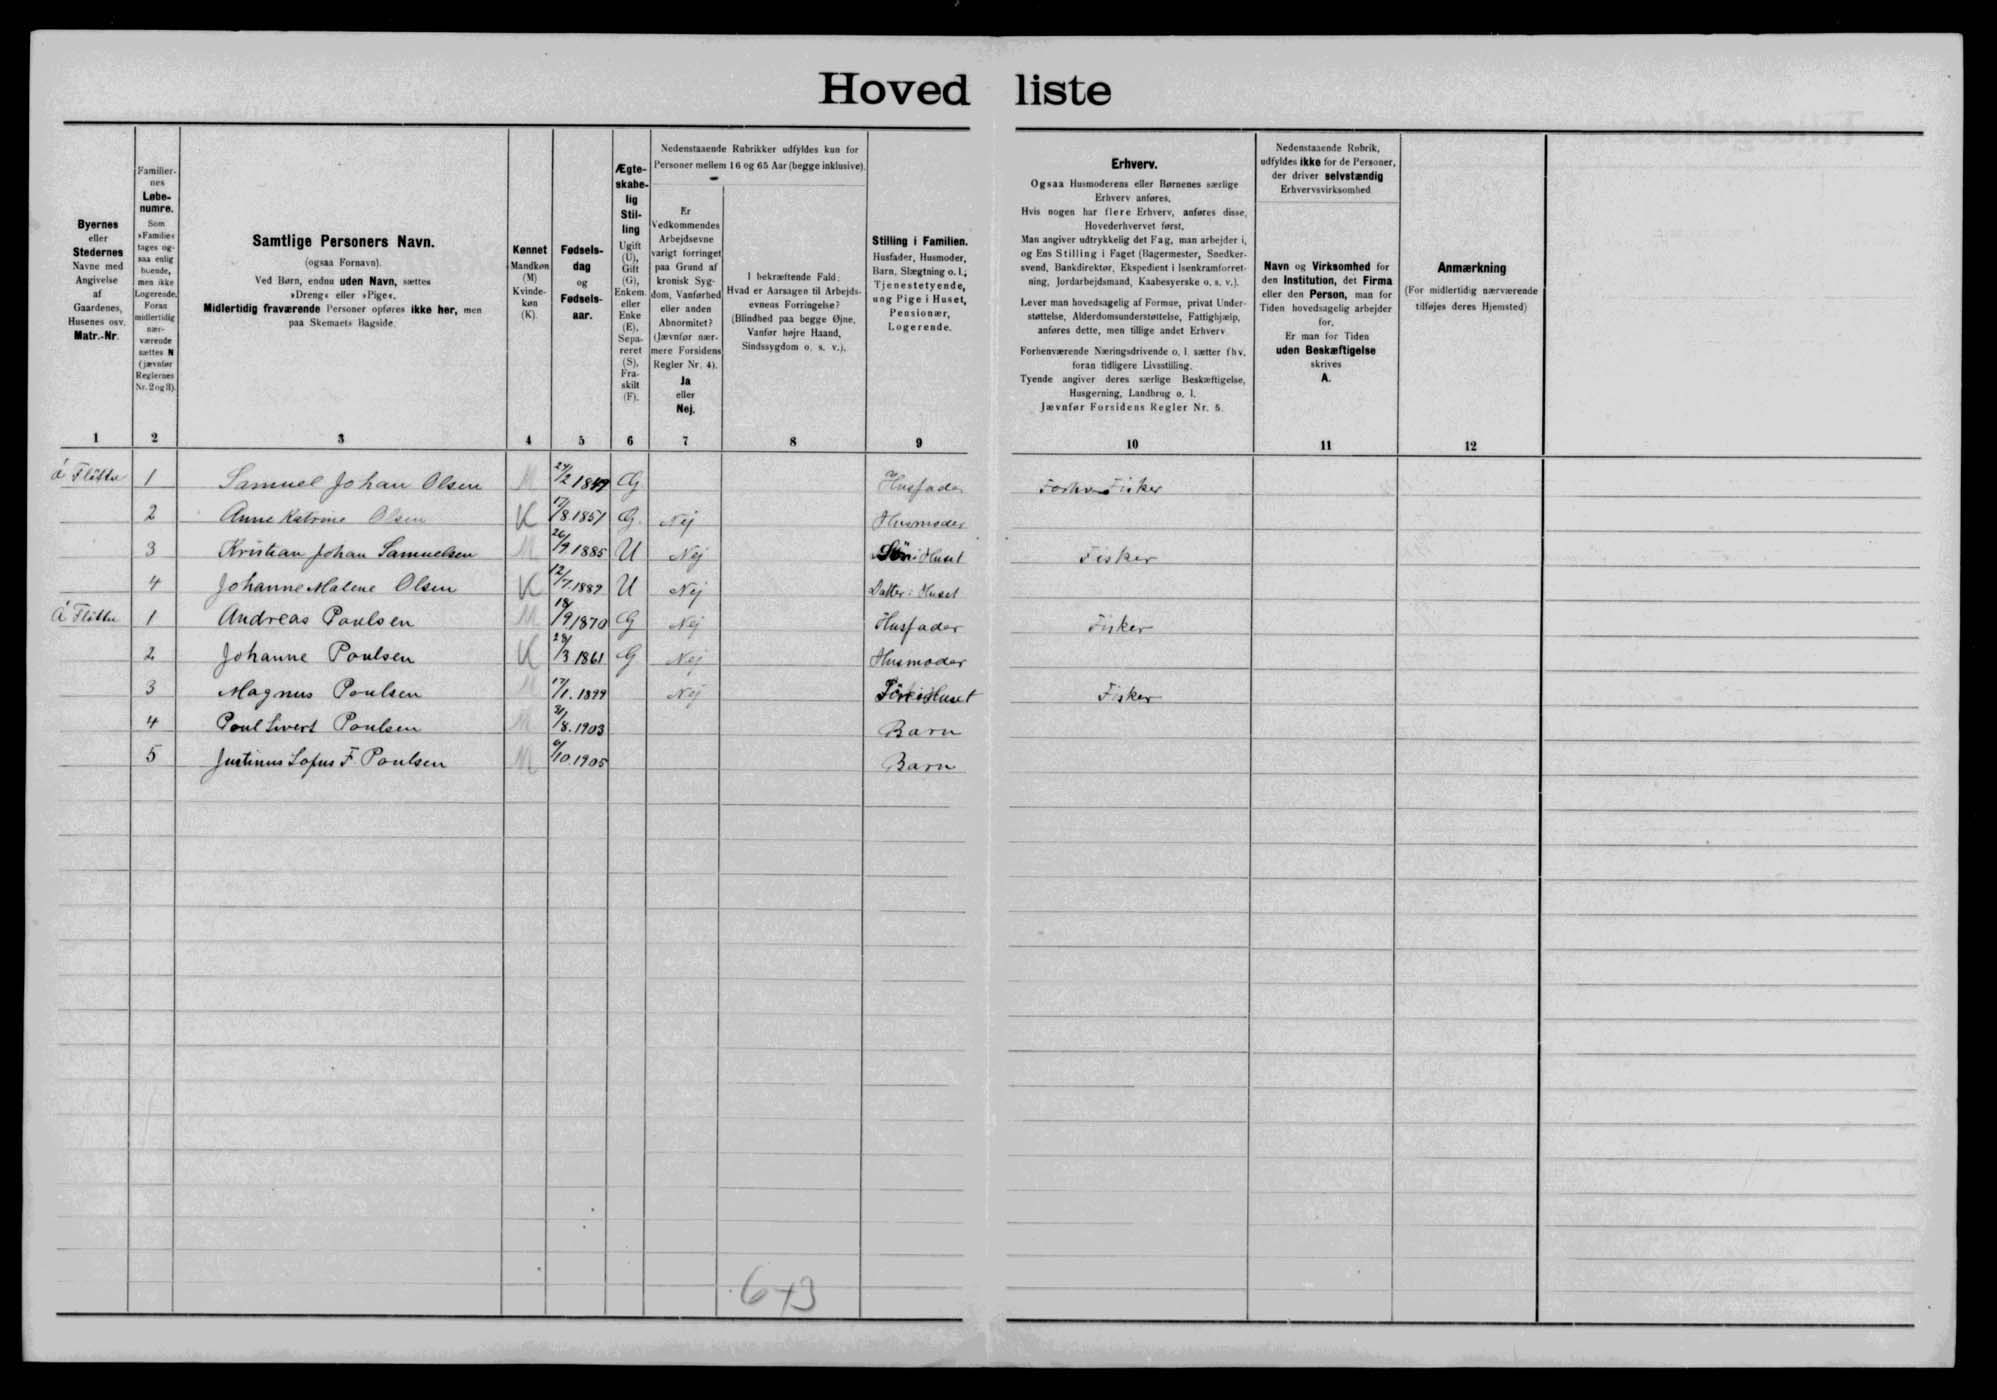 Hovedliste
Byernes
eller
Stedernes
Navne med
Angivelse
af
Gaardenes,
Husenes osv.
Matr.-Nr.
1
Familier-
nes
Løbe-
numre.
Som
»Familie«
tages og-
saa enlig
boende,
men ikke
Logerende.
Foran
midlertidig
nær-
værende
sættes N
(jævnfør
Reglernes
Nr. 2 og 3).
2
Samtlige Personers Navn.
(ogsaa Fornavn).
Ved Børn, endnu uden Navn, sættes
»Dreng« eller »Pige«.
Midlertidig fraværende Personer opføres ikke her, men
paa Skemaets Bagside.
3
Kønnet
Mandkøn
(M)
Kvinde-
køn
(K).
4
Fødsels-
dag
og
Fødsels-
aar.
5
Ægte-
skabe-
lig
Stil-
ling
Ugift
(U),
Gift
(G),
Enkem.
eller
Enke
(E),
Sepa-
reret
(S),
Fra-
skilt
(F).
6
Nedenstaaende Rubrikker udfyldes kun for
Personer mellem 16 og 65 Aar (begge inklusive).
Er
Vedkommendes
Arbejdsevne
varigt forringet
paa Grund af
kronisk Syg-
dom, Vanførhed
eller anden
Abnormitet?
(Jævnfør nær-
mere Forsidens
Regler Nr. 4).
Ja
eller
Nej.
7
I bekræftende Fald:
Hvad er Aarsagen til Arbejds-
evnens Forringelse?
(Blindhed paa begge Øjne,
Vanfør højre Haand,
Sindssygdom o. s. v.).
8
Stilling i Familien.
Husfader, Husmoder,
Barn, Slægtning o. l.;
Tjenestetyende,
ung Pige i Huset,
Pensionær,
Logerende.
9
Erhverv.
Ogsaa Husmoderens eller Børnenes særlige
Erhverv anføres.
Hvis nogen har flere Erhverv, anføres disse,
Hovederhvervet først.
Man angiver udtrykkelig det Fag, man arbejder i,
og Ens Stilling i Faget (Bagermester, Snedker-
svend, Bankdirektør, Ekspedient i Isenkramforret-
ning, Jordarbejdsmand, Kaabesyerske o. s. v.).
Lever man hovedsagelig af Formue, privat Under-
støttelse, Alderdomsunderstøttelse, Fattighjælp,
anføres dette, men tillige andet Erhverv.
Forhenværende Næringsdrivende o. l. sætter fhv.
foran tidligere Livsstilling.
Tyende angiver deres særlige Beskæftigelse,
Husgerning, Landbrug o. l.
Jævnfør Forsidens Regler Nr. 5.
10
Nedenstaaende Rubrik,
udfyldes ikke for de Personer,
der driver selvstændig
Erhvervsvirksomhed
Navn og Virksomhed for
den Institution, det Firma
eller den Person, man for
Tiden hovedsagelig arbejder
for.
Er man for Tiden
uden Beskæftigelse
skrives
A.
11
Anmærkning
(For midlertidig nærværende
tilføjes deres Hjemsted)
12
á Fløttu 1 Samuel Johan Olsen M 24/2 1849 G Husfader Forhv Fisker
2 Anne Katrine Olsen K 17/8.1851 G. Nej Husmoder
3 Kristian Johan Samuelsen M 26/9 1885 U Nej Sön i Huset Fisker
4 Johanne Malene Olsen K 12/7.1889 U Nej Datter i Huset
á Fløttu 1 Andreas Poulsen M 18/9 1870 G Nej Husfader Fisker
2 Johanne Poulsen K 28/3 1861 G Nej Husmoder
3 Magnus Poulsen M 17/1.1899 Nej i Huset Fisker
4 Poul Sivert Poulsen M 31/8.1903 Barn
5 Justinus Sofus F. Poulsen M 6/10.1905 Barn
6+3